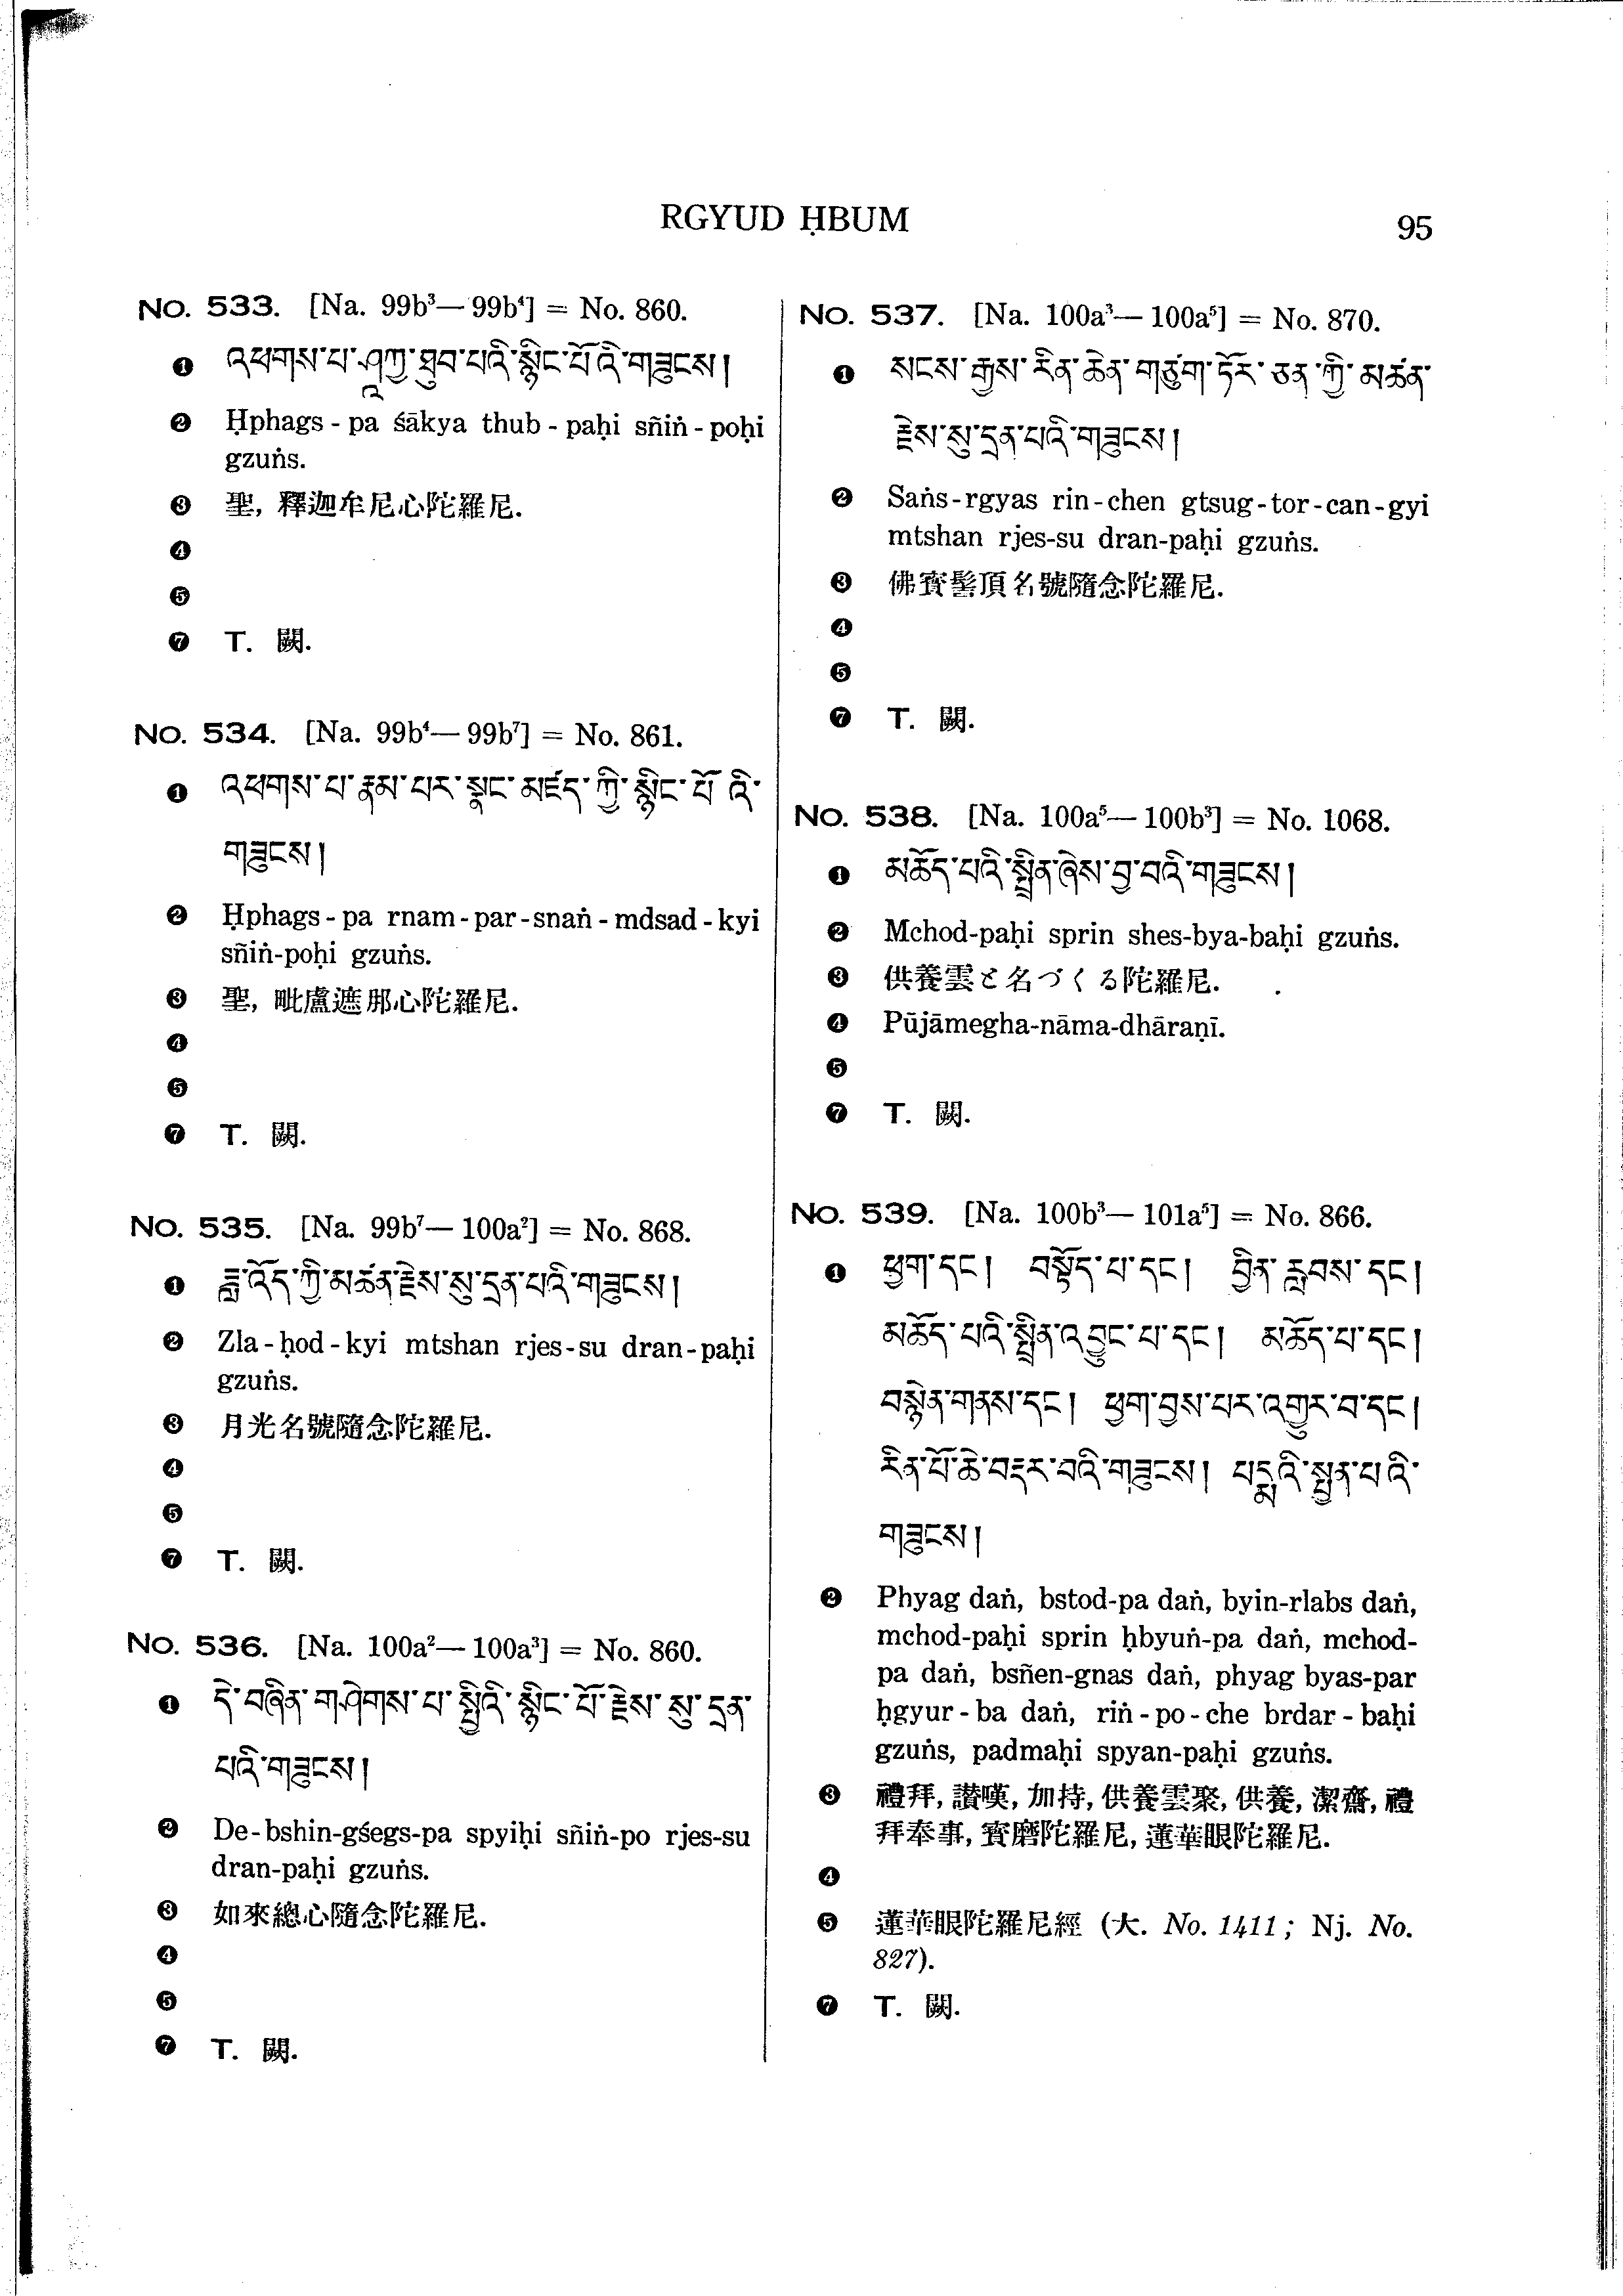 RGYUD ḤBUM
95
No. 533. [Na. 99b³—99b⁴] = No. 860.
❶ འཕགས་པ་ཤཱཀྱ་ཐུབ་པའི་སྙིང་པོའི་གཟུངས།
❷ Ḥphags-pa śākya thub-paḥi sñiṅ-poḥi
gzuṅs.
❸ 聖, 釋迦牟尼心陀羅尼.
❹
❺
❼ T. 闕.
No. 534. [Na. 99b⁴—99b⁷] = No. 861.
❶ འཕགས་པ་རྣམ་པར་སྣང་མཛད་ཀྱི་སྙིང་པོ་འི་
གཟུངས།
❷ Ḥphags-pa rnam-par-snaṅ-mdsad-kyi
sñiṅ-poḥi gzuṅs.
❸ 聖, 毗盧遮那心陀羅尼.
❹
❺
❼ T. 闕.
No. 535. [Na. 99b⁷—100a²] = No. 868.
❶ ཟླ་འོད་ཀྱི་མཚན་རྗེས་སུ་དྲན་པའི་གཟུངས།
❷ Zla-ḥod-kyi mtshan rjes-su dran-paḥi
gzuṅs.
❸ 月光名號隨念陀羅尼.
❹
❺
❼ T. 闕.
No. 536. [Na. 100a²—100a³] = No. 860.
❶ དེ་བཞིན་གཤེགས་པ་སྤྱིའི་སྙིང་པོ་རྗེས་སུ་དྲན་
པའི་གཟུངས།
❷ De-bshin-gśegs-pa spyiḥi sñiṅ-po rjes-su
dran-paḥi gzuṅs.
❸ 如來總心隨念陀羅尼.
❹
❺
❼ T. 闕.
No. 537. [Na. 100a³—100a⁵] = No. 870.
❶ སངས་རྒྱས་རིན་ཆེན་གཙུག་ཏོར་ཅན་ཀྱི་མཚན་
རྗེས་སུ་དྲན་པའི་གཟུངས།
❷ Saṅs-rgyas rin-chen gtsug-tor-can-gyi
mtshan rjes-su dran-paḥi gzuṅs.
❸ 佛寶髻頂名號隨念陀羅尼.
❹
❺
❼ T. 闕.
No. 538. [Na. 100a⁵—100b³] = No. 1068.
❶ མཆོད་པའི་སྤྲིན་ཞེས་བྱ་བའི་གཟུངས།
❷ Mchod-paḥi sprin shes-bya-baḥi gzuṅs.
❸ 供養雲と名づくる陀羅尼.
❹ Pūjāmegha-nāma-dhāraṇī.
❺
❼ T. 闕.
No. 539. [Na. 100b³—101a⁵] = No. 866.
❶ ཕྱག་དང། བསྟོད་པ་དང། བྱིན་རླབས་དང།
མཆོད་པའི་སྤྲིན་འབྱུང་པ་དང། མཆོད་པ་དང།
བསྙེན་གནས་དང། ཕྱག་བྱས་པར་འགྱུར་བ་དང།
རིན་པོ་ཆེ་བརྡར་བའི་གཟུངས། པདྨའི་སྤྱན་པའི་
གཟུངས།
❷ Phyag daṅ, bstod-pa daṅ, byin-rlabs daṅ,
mchod-paḥi sprin ḥbyuṅ-pa daṅ, mchod-
pa daṅ, bsñen-gnas daṅ, phyag byas-par
ḥgyur-ba daṅ, riṅ-po-che brdar-baḥi
gzuṅs, padmaḥi spyan-paḥi gzuṅs.
❸ 禮拜, 讃嘆, 加持, 供養雲聚, 供養, 潔齋, 禮
拜奉事, 寶磨陀羅尼, 蓮華眼陀羅尼.
❹
❺ 蓮華眼陀羅尼經 (大. No. 1411; Nj. No.
827).
❼ T. 闕.